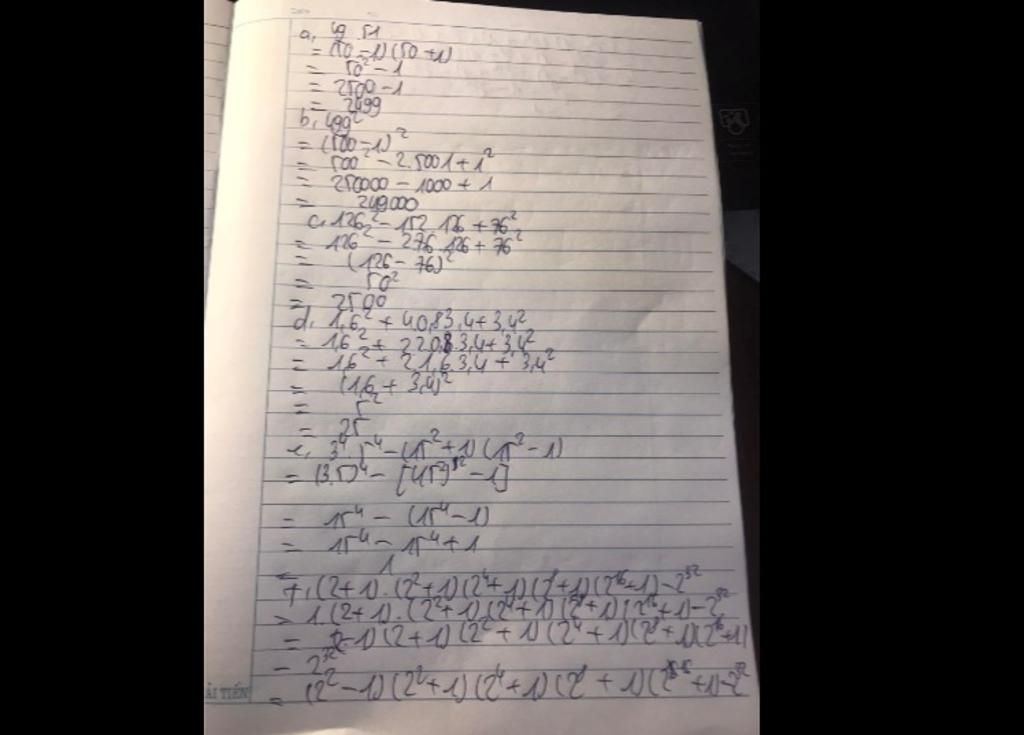 a, 49.51
= (50-1)(50+1)
= 50² - 1
= 2500 - 1
= 2499
b, 499²
= (500-1)²
= 500² - 2.500.1 + 1²
= 250000 - 1000 + 1
= 249000
c, 126² - 152.126 + 76²
= 126² - 2.76.126 + 76²
= (126 - 76)²
= 50²
= 2500
d, 1,6² + 4.0,8.3,4 + 3,4²
= 1,6² + 2.2.0,8.3,4 + 3,4²
= 1,6² + 2.1,6.3,4 + 3,4²
= (1,6 + 3,4)²
= 5²
= 25
e, 3⁴.5⁴ - (15²+1)(15²-1)
= (3.5)⁴ -
= 15⁴ - (15⁴-1)
= 15⁴ - 15⁴ + 1
= 1
f, (2+1).(2²+1)(2⁴+1)(2⁸+1)(2¹⁶+1) - 2³²
= 1.(2+1).(2²+1).(2⁴+1)(2⁸+1)(2¹⁶+1) - 2³²
= (2-1)(2+1)(2²+1)(2⁴+1)(2⁸+1)(2¹⁶+1)
- 2³²
= (2²-1)(2²+1)(2⁴+1)(2⁸+1)(2¹⁶+1) - 2³²
ẢI TIẾN